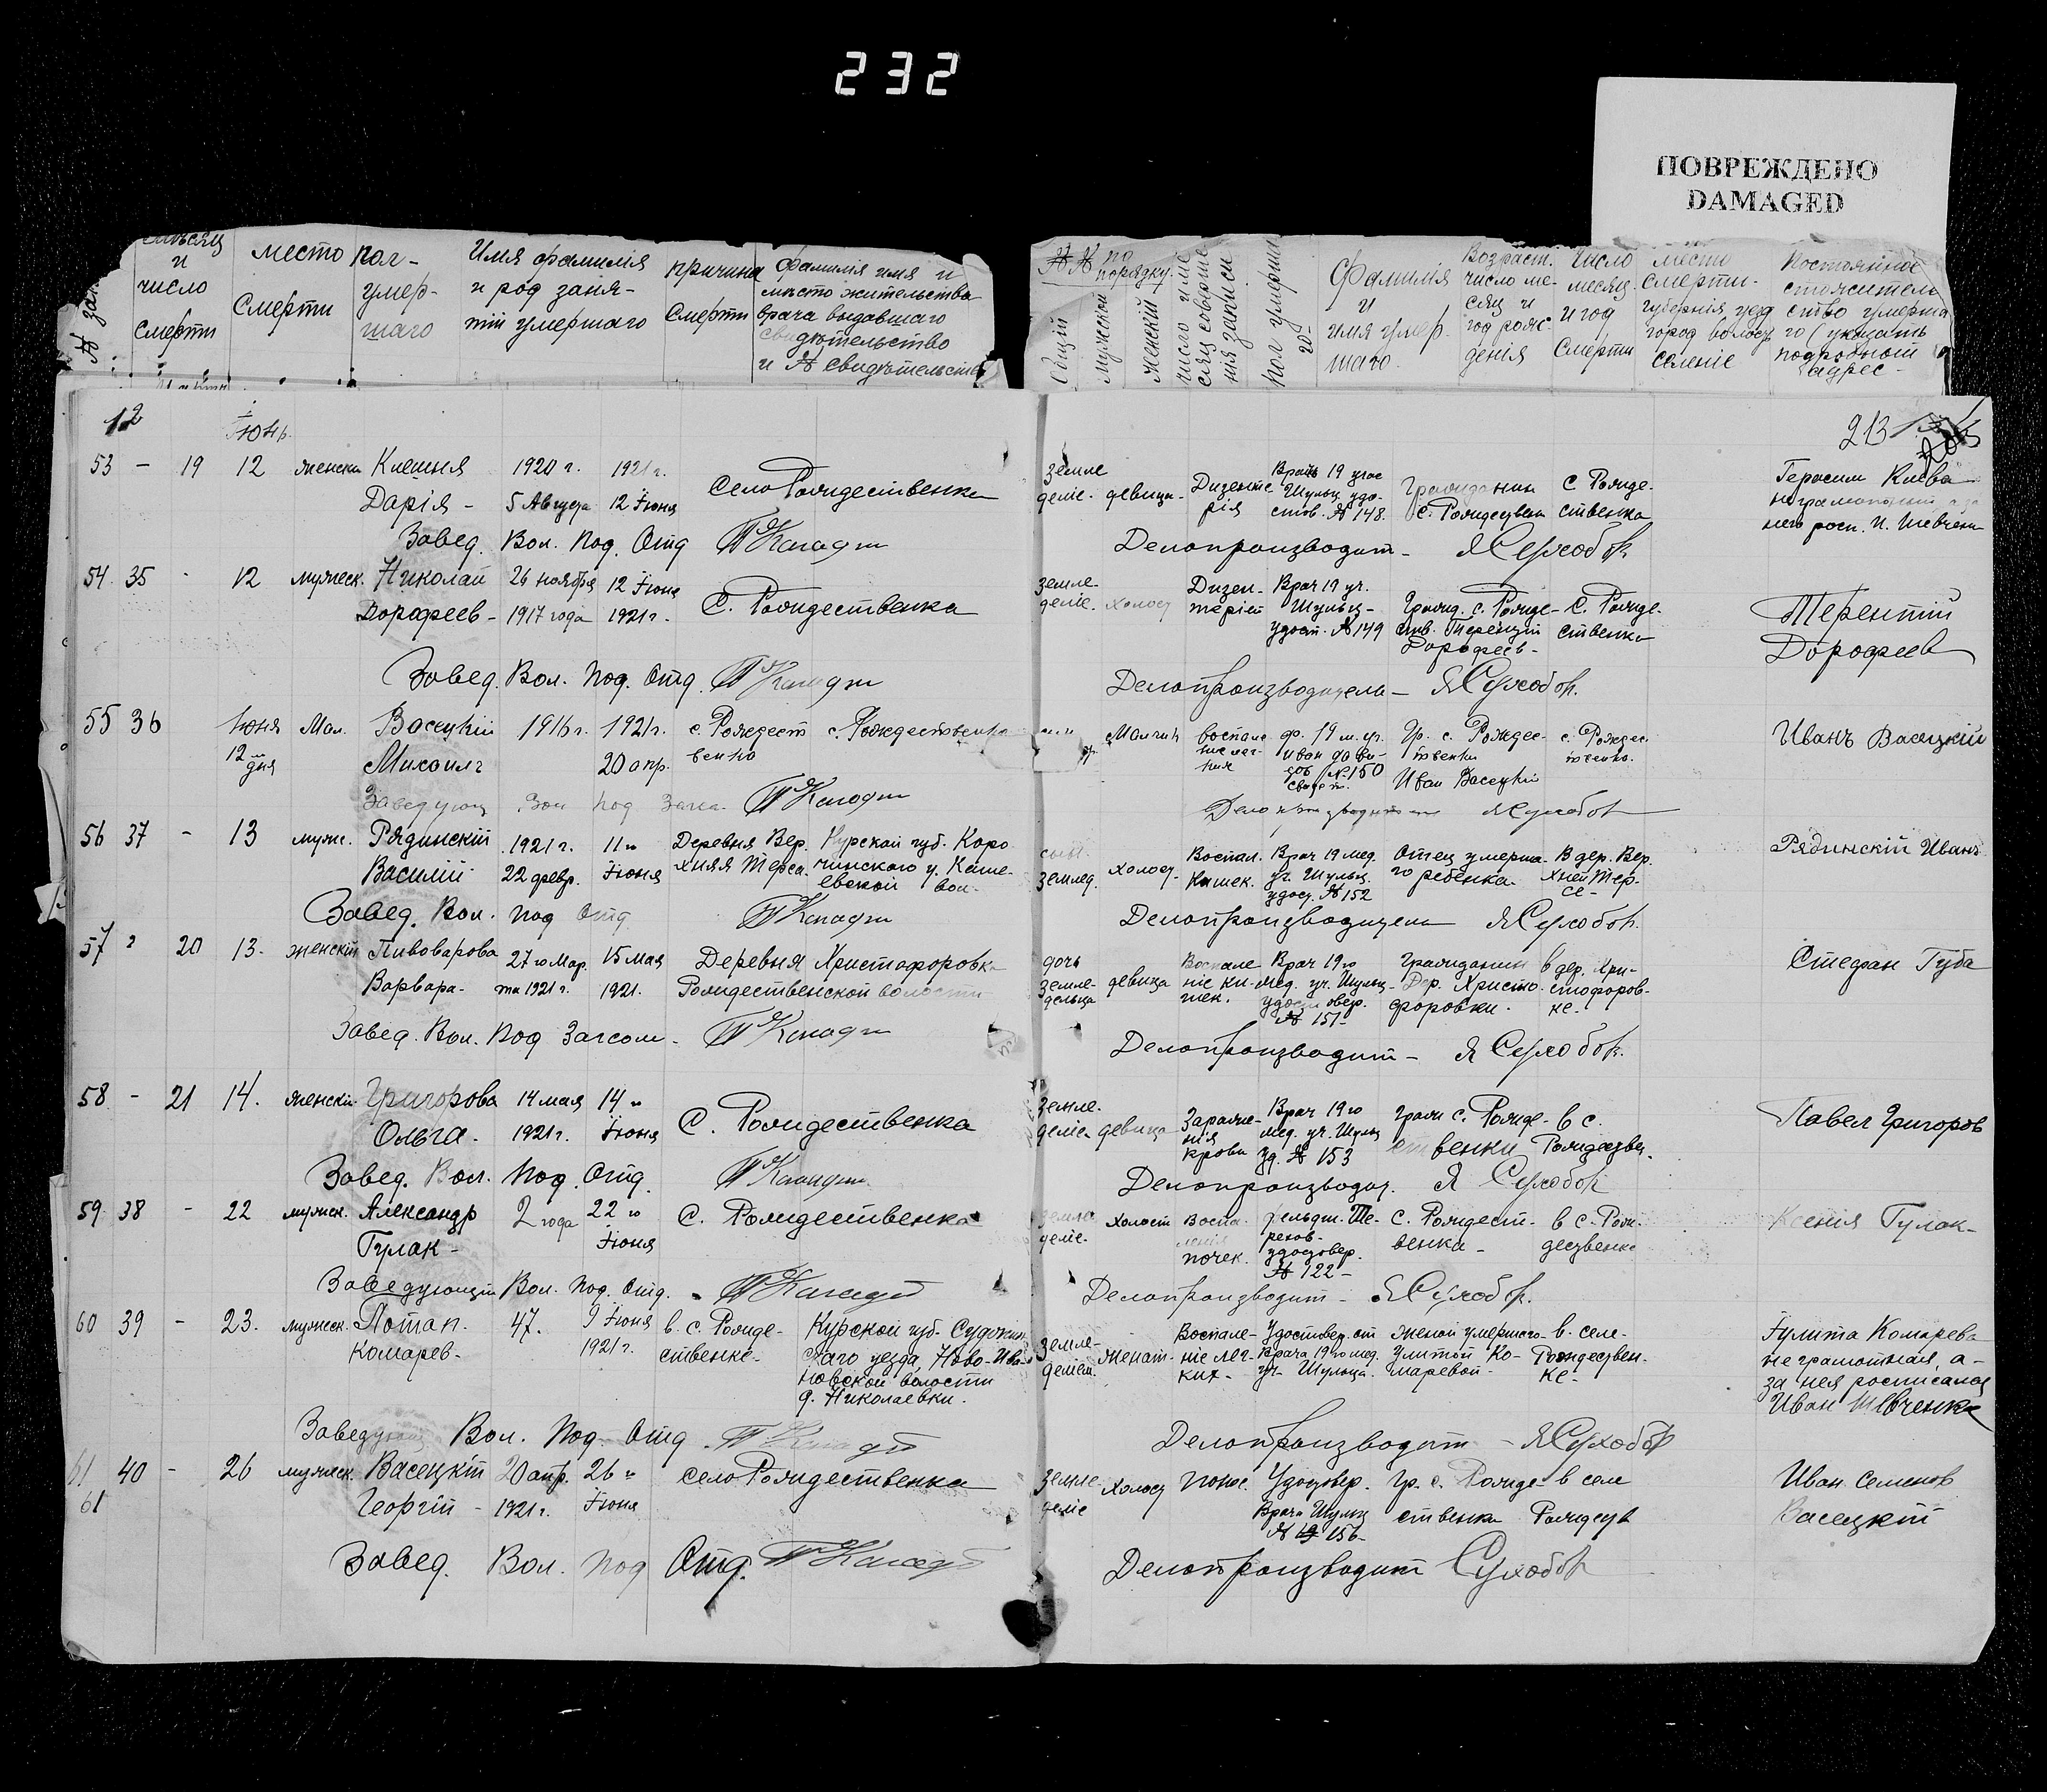 232
ПОВРЕЖДЕНО
DAMAGED
число
смерти
место
Смерти
пол
умер-
шаго
Имя фамилія
и род заня-
тій умершаго
причина
Смерти
Фамилія имя и
место жительства
врача выдавшаго
свидетельство
и № свидетельства
№№ по порядку
Общій
Мужской
Женскій
число и ме
сяц соверше
нія записи
пол умерша
го
Фамилія
и
имя умер
шаго.
Возраст.
число ме-
сяц и
год рож-
денія
число
месяц
и год
Смерти
место
смерти.
губернія, уезд
город волост
селеніе
Постоянное
го (указать
подробный
адрес
12
Іюнь
213
53 - 19 12 женски
Дарія - 1920 г. 5 Августа 1921 г. 12 Іюня Село Рождественка
земле
деліе. девица. Дизенте
рія Врачь 19 учас
Шульц удо-
стов. № 148. Гражданин
с. Рождествен с. Рожде-
ственка
Герасим
него росп. И. Шевченк
Завед. Вол. Под. Отд
Делопроизводит - Я Сухобор.
54 35 - 12 мужеск. Николай
Дорофеев - 26 ноября
1917 года 12 Іюня
1921 г. С. Рождественка
земле-
деліе. холост Дизен-
терія Врач 19 уч.
Шульц -
удост. № 149 Гражд. с. Рожде-
ств. Терентій
Дорофеев - С. Рожде-
ственка
Терентій
Дорофеев
Завед. Вол. Под. Отд.
Делопроизводитель - Я Сухобор.
55 36 Іюня
12 дня Мал. Васецкій
Михаилъ 1916 г. 1921 г.
20 апр. с. Рождест
венка с. Рождественка
воспале
ніе лег-
ких фр. 19 м. уч.
№ 150
Гр. с. Рождес-
твенки
Иван Васецкій с. Рождес-
твенка.
Иванъ Васецкій
Делопроизводит Я Сухобор
56 37 - 13 мужс. Рядинскій
Василій 1921 г.
22 февр. 11 го
Іюня Деревня Вер.
хняя Терса. Курской губ. Коро
чинского у.
вол-
сын
землед. холост. Воспал.
Кишек. Врач 19 мед.
уч. Шульц.
удост. № 152 Отец умерша-
го ребенка. В дер. Вер.
хней Тер-
се -
Рядинскій Иванъ
Завед. Вол. Под Отд
Делопроизводитель Я Сухобор.
57 - 20 13. женскій Пивоварова
Варвара. 27 го Мар.
та 1921 г. 15 мая
1921. Деревня Христофоровка
Рождественской волости
дочь
земле-
дельца девица Воспале
ніе ки-
шек. Врач 19 го
мед. уч. Шульц -
удостовер.
№ 151 - Гражданин
Дер. Христо-
форовки. в дер. Хри-
стофоров-
ке -
Стефан Губа
Завед. Вол. Под Загсом -
Делопроизводит - Я Сухобор.
58 - 21 14. женскій Григорова
Ольга. 14 мая
1921 г. 14 го
Іюня С. Рождественка
земле-
деліе девица Зараже-
нія
крови Врач 19 го
мед. уч. Шульц
уд. № 153 Граж с. Рожде-
ственки в с.
Рождествен.
Павел Григоров
Завед. Вол. Под. Отд.
Делопроизвод. Я Сухобор
59 38 - 22 мужск. Александр
Гулак - 2 года 22 го
Іюня С. Рождественка
земле
деліе. Холост Воспа-
ленія
почек. Фельдш. Те-
рехов -
удостовер.
№ 122 - С. Рождест-
венка - в с. Рож-
дественке
Ксенія Гулак -
Заведующій Вол. Под. Отд.
Делопроизводит - Я Сухобор.
60 39 - 23. мужеск. Потап.
Комарев - 47. 9 Іюня
1921 г. в. с. Рожде-
ственке - Курской губ. Суджан
скаго уезда, Ново-Ива-
новской волости
д. Николаевки.
земле-
делец. женат. Воспале-
ніе лег-
ких - Удостовер. от
Врача 19 го мед.
уч. Шульца. женой умершего
Улитой Ко-
маревой - в. селе-
Рождествен-
ке -
Іулита Комарева
неграмотная, а -
за нея росписался
Иван Шевченко
Заведующ Вол. Под. Отд.
Делопроизводит - Я Сухобор
61 40 - 26 мужеск. Васецкій
61 Георгій - 20 апр.
1921 г. 26 го
Іюня село Рождественка
земле
деліе Холост Понос. Удостовер.
Врача Шульц
№ 156 Гр. с. Рожде-
ственки в селе
Рождеств
Иван Семенов
Васецкій
Завед. Вол. Под Отд.
Делопроизводит Сухобор